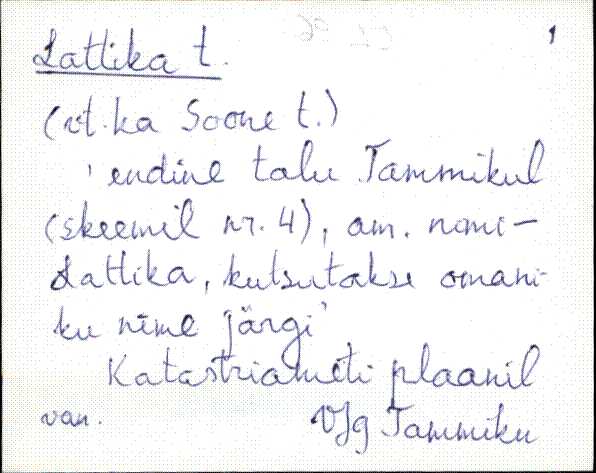 1
Lattika t.
(vt. ka Soone t.)
'endine talu Tammikul
(skeemil nr. 4), am. nimi -
Lattika, kutsutakse omani-
ku nime järgi'
Katastriameti plaanil
van. VJg Tammiku